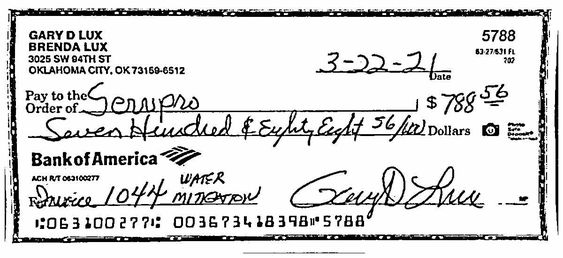 GARY D LUX
BRENDA LUX
3025 SW 94TH ST
OKLAHOMA CITY, OK 73159-6512
5788
63-27/631 FL
702
3-22-21 Date
Pay to the Order of Servpro $ 788 56
Seven Hundred & Eighty Eight 56/100 Dollars
Photo Safe Deposit
Bank of America
ACH R/T 063100277
For Invoice 1044 WATER MITIGATION Gary D Lux MP
⑆063100277⑆ 003673418398⑈5788